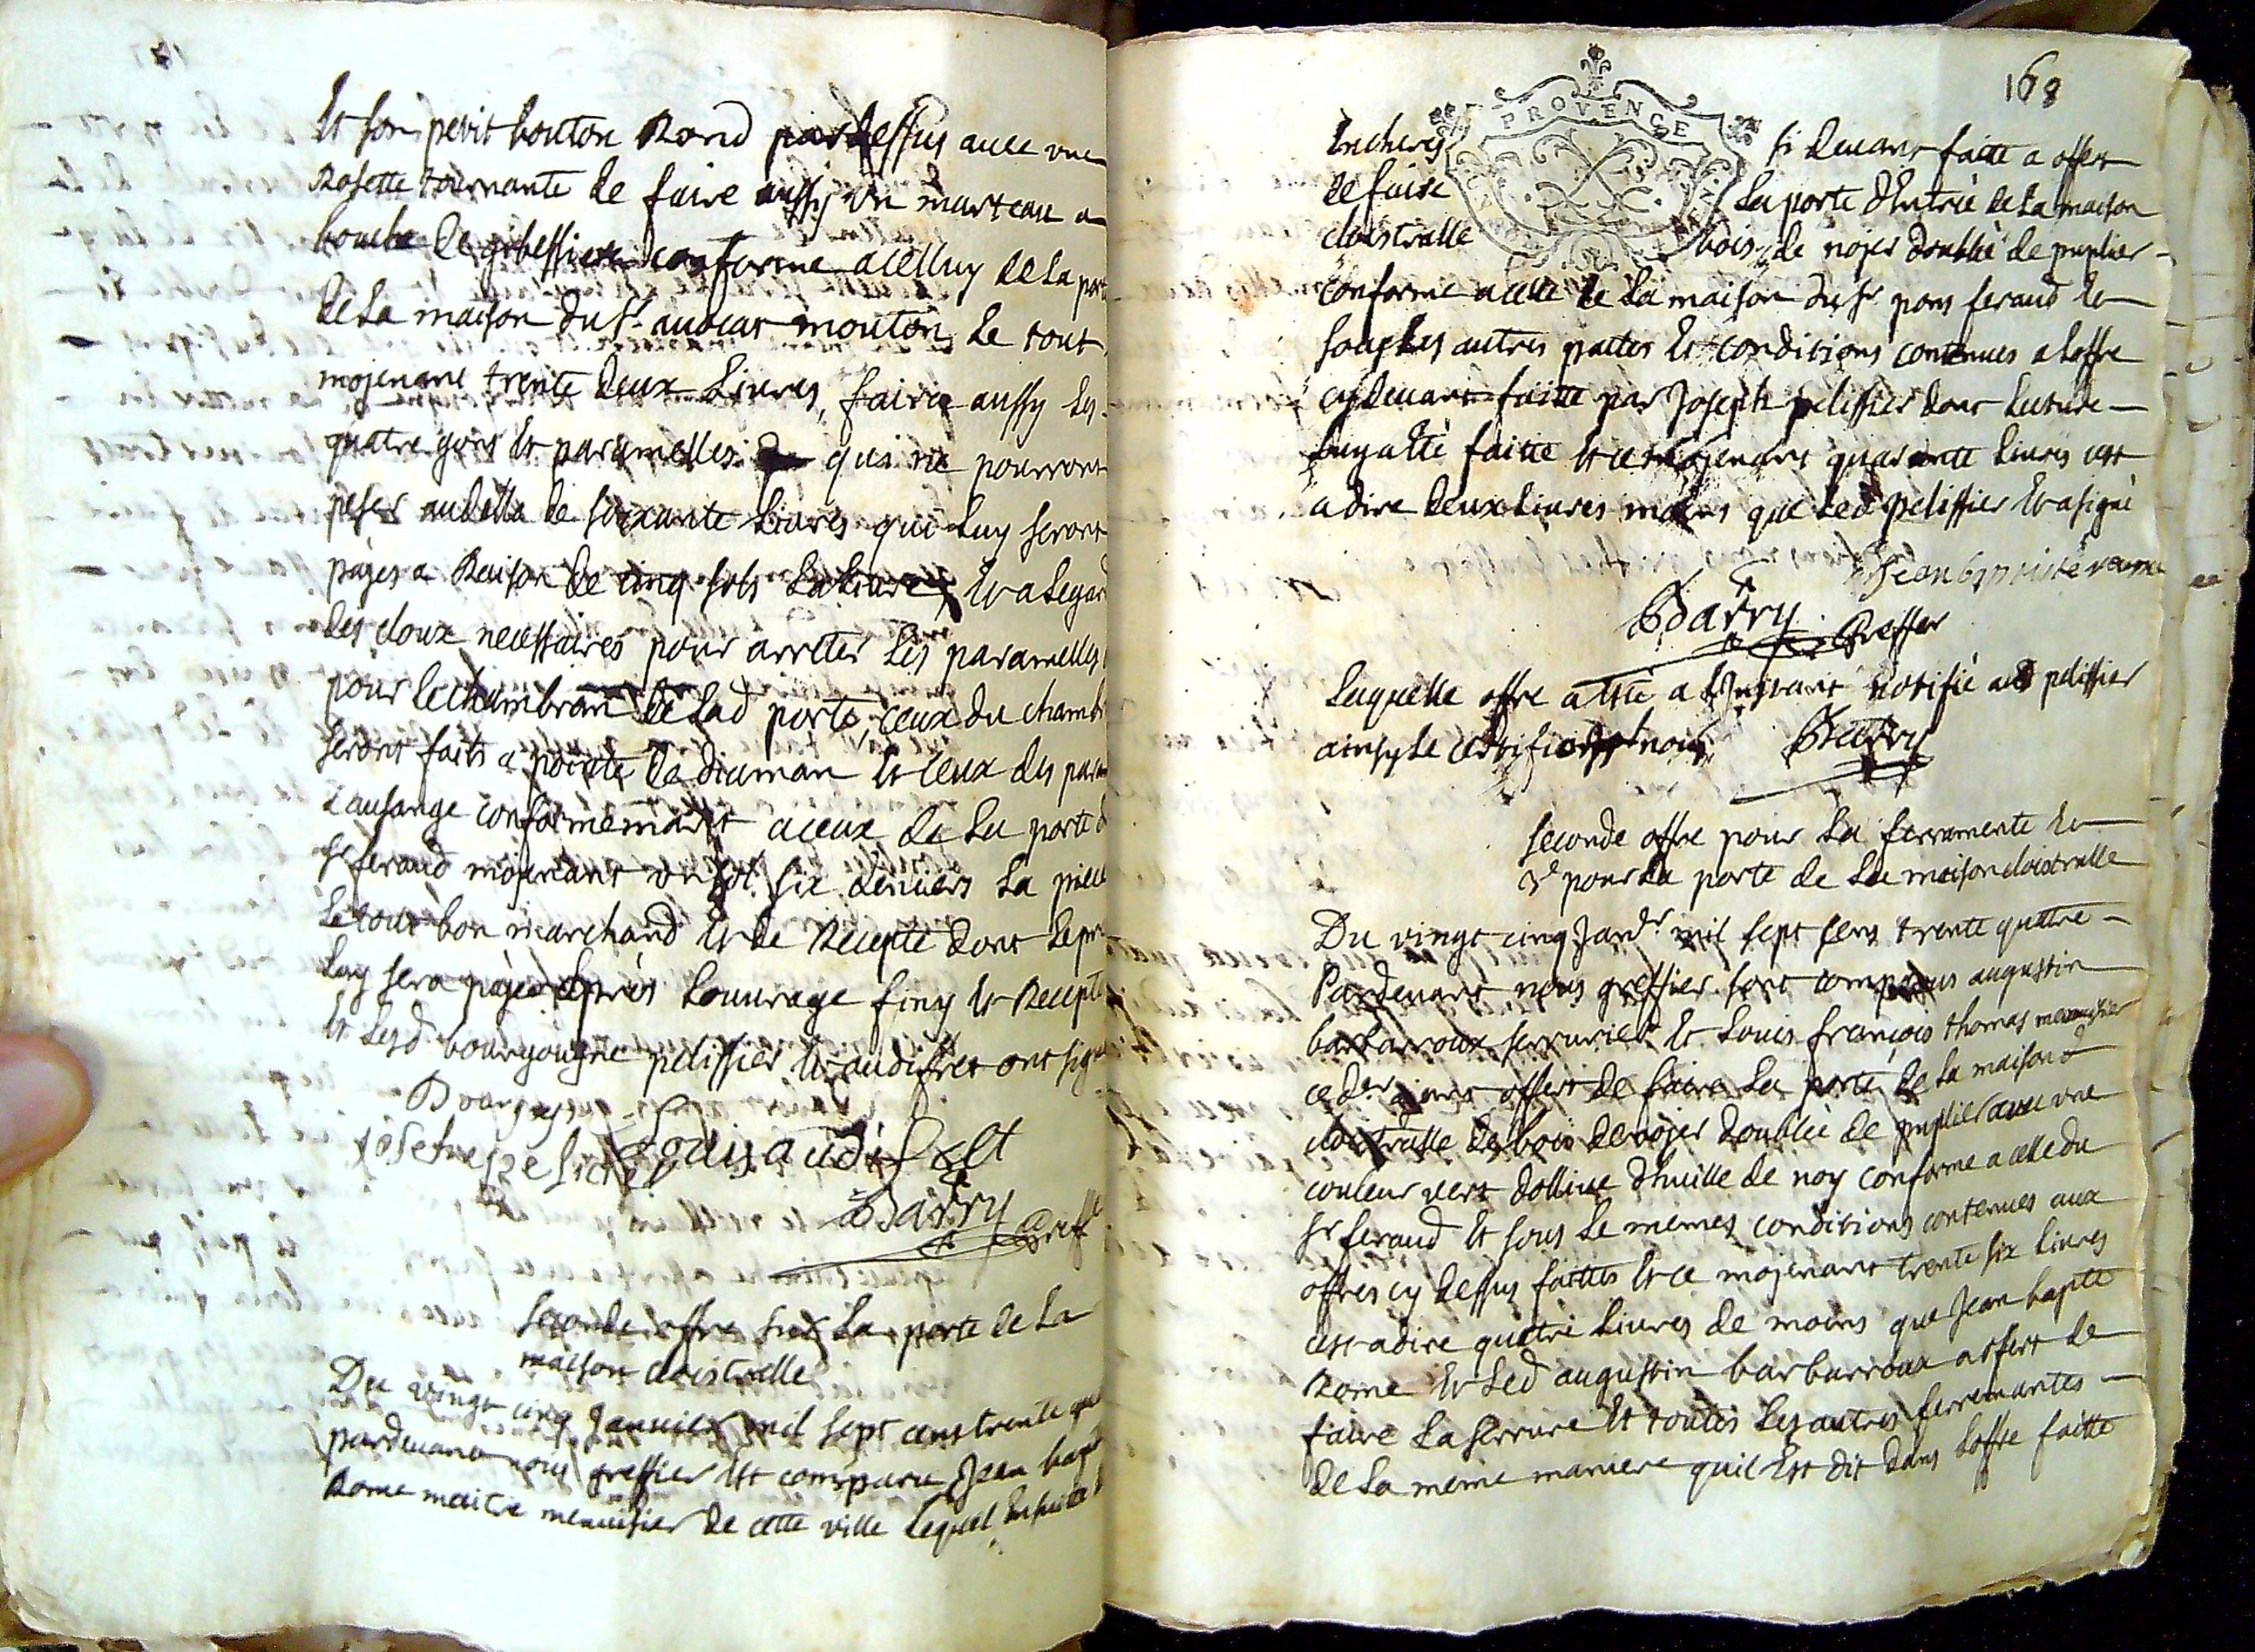 et son petit bouton Rond pardessus avec une
Rosette tournante de faire aussy un marteau a
bouche de gibessiere conforme a celluy de la port
de la maison du Sr. avocat mouton le tout
mojenant trente deux Livres, faire aussy les
quatre gons et paramelles qui ne pourront
peser audella de soixante Livres qui luy seront
pàjes a Raison de cinq sols la livre, et a legard
des cloux necessaires pour arreter les paramelles
pour le chambran de lad porte, ceux du chamb
seront faits a pointe de diaman et ceux des param
Lausange conformemant a ceux de la porte d
Sr feraud mojenant un sol six deniers la piece
le tout bon marchand et de Recepte dont le pr
luy sera pàjé après Louvrage finy et Recepte
et lesd bourgougne pelissier et audiffret ont signé
Bourgogne
josehe pelicier Louis audiffret
Barry greff
Seconde offre sur la porte de la
maison cloistralle
Du vingt cinq Janvier mil sept cens trente qua
pardevant nous greffier est comparu Jean bapt
Rome maitre menuisier de cette ville lequel ensuite d
168
PROVENCE
encheres si devant faitte a offert
de faire la porte d'Entrèe de la maison
cloistralle bois de nojer doublèe de puplier
conforme a celle de la maison du Sr pons feraud et
sous les autres pactes et conditions contenues a loffre
cy devant faitte par Joseph pelissier dont lecture
luy a été faitte et ce mojenant quarante livres cest
a dire deux livres moins que led pelissier et a signè
Jean baptiste rome
Barry Greffier
Laquelle offre a ètè a l'Instant notifiè aud pelissier
ainsy le certifions nous Barry
Seconde offre pour la ferramente et
pour la porte de la maison cloistralle
Du vingt cinq Janvr. mil sept cens trente quattre
Pardevant nous greffier sont comparus augustin
barbarroux serrurier et Louis françois thomas menusier
ce der ajant offert de faire la porte de la maison
cloistralle de bois de nojer doublèe de puplier avec une
couleur vert dollive d'huille de noy conforme a celle du
Sr feraud et sous le mèmes conditions contenues aux
offres cy dessus faittes et ce mojenant trente six livres
cest adire quattre Livres de moins que Jean bapte
Rome et led augustin barbarroux a offert de
faire la serrure et toutes les autres ferremantes
de la meme maniere quil Est dit dans loffre faitte